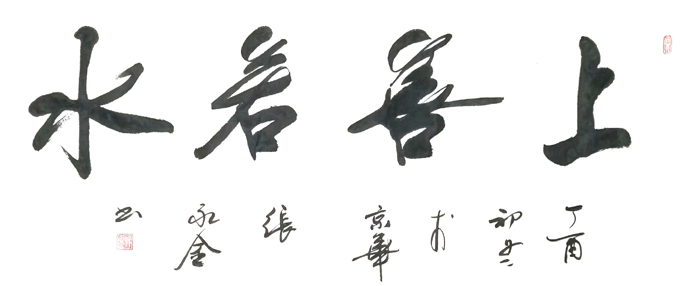 上善若水
丁酉
初冬
于
京華
張
永金
书